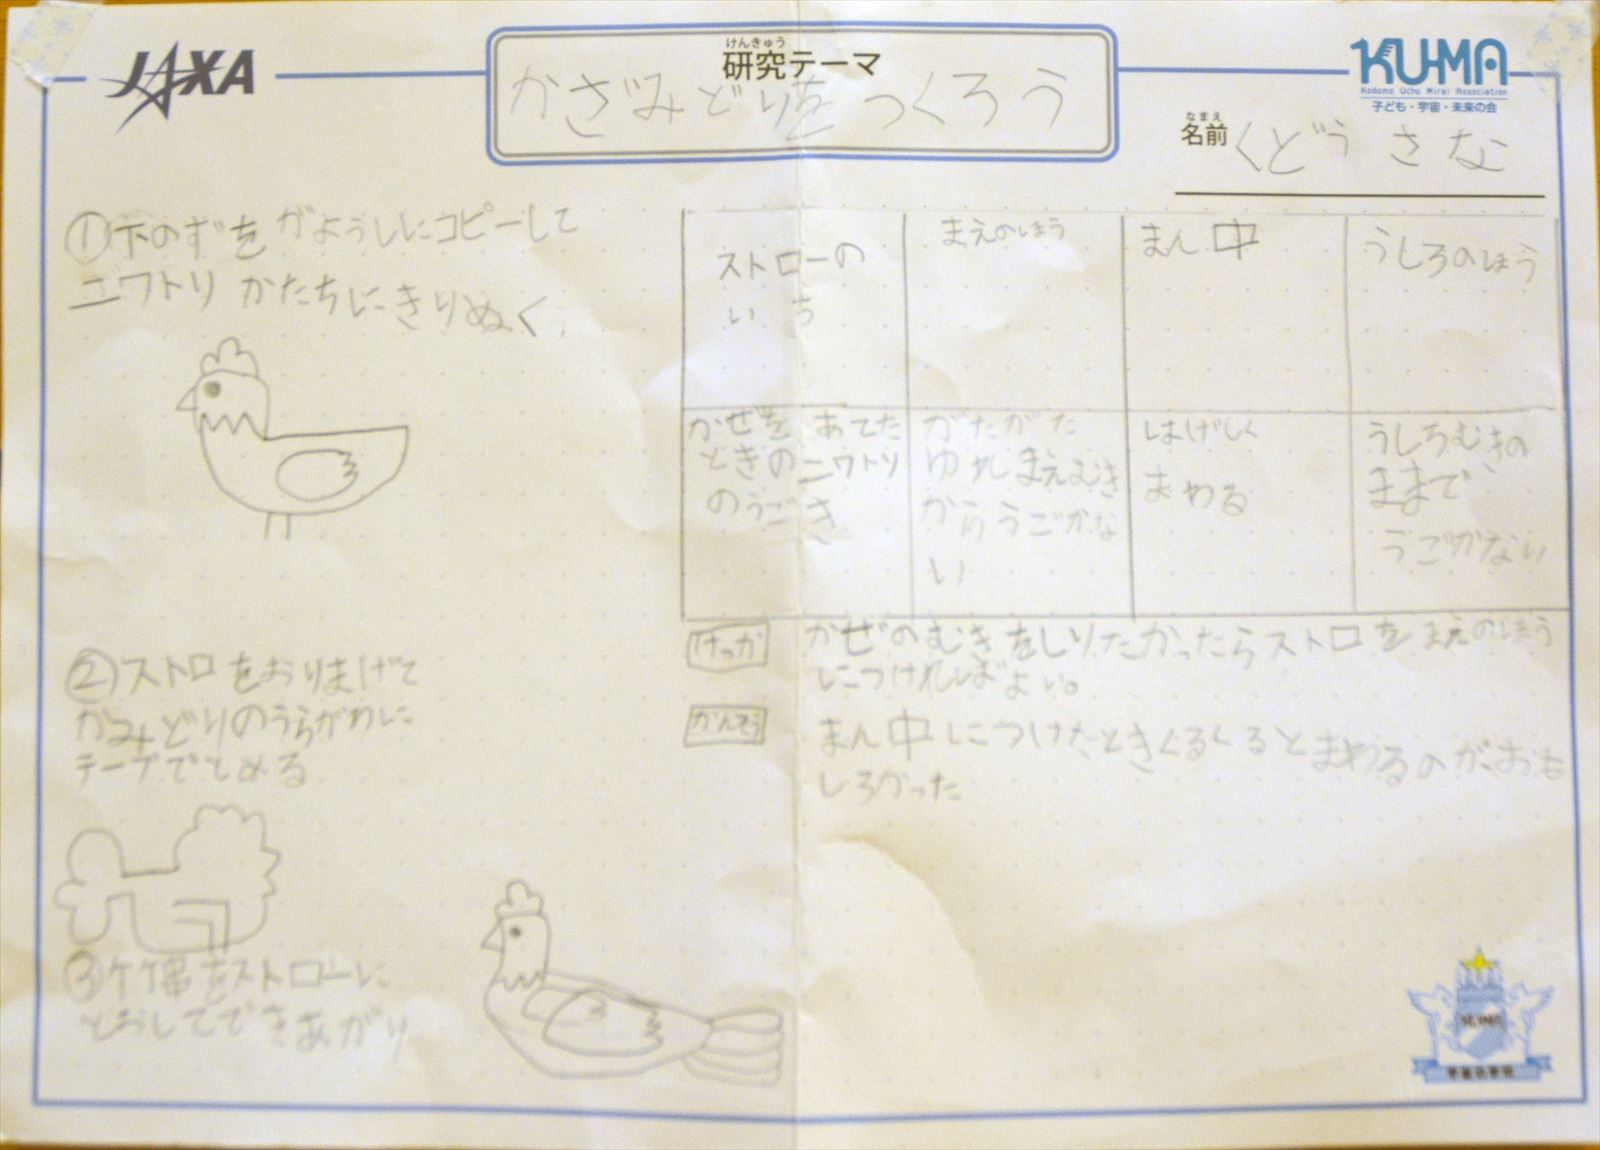 JAXA
けんきゅう
研究テーマ
かざみどりをつくろう
KU-MA
Kodomo Uchu Mirai Association
子ども・宇宙・未来の会
なまえ
名前
くどう さな
①下のずをがようしにコピーして
ニワトリ かたちにきりぬく
②ストロをおりまげて
かざみどりのうらがわに
テープでとめる
③竹串をストローに
とおしてできあがり
ストローの
いち
まえのほう
まん中
うしろのほう
かぜをあてた
ときのニワトリ
のうごき
がたがた
ゆれまえむき
からうごかな
い
はげしく
まわる
うしろむきの
ままで
うごかない
けっか
かぜのむきをしりたかったらストロをまえのほう
につければよい。
かんそう
まん中につけたときくるくるとまわるのがおも
しろかった